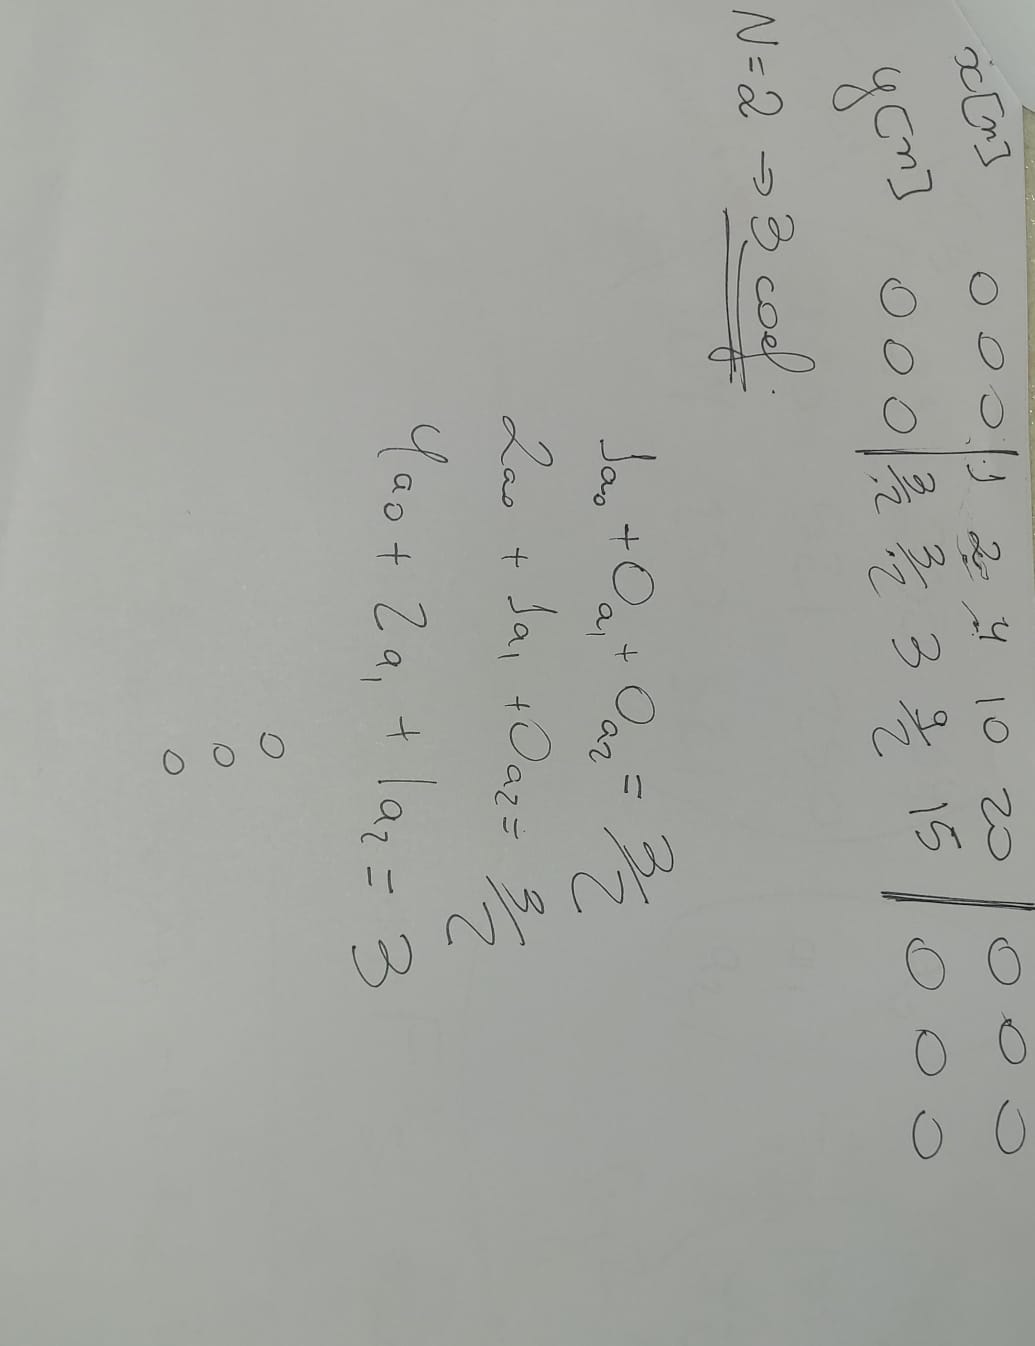 x[n] 0 0 0 | 1 2 4 10 20 | 0 0 0
y[n] 0 0 0 | 3/2 3/2 3 9/2 15 | 0 0 0
N = 2 → 3 coef.
1a₀ + 0a₁ + 0a₂ = 3/2
2a₀ + 1a₁ + 0a₂ = 3/2
4a₀ + 2a₁ + 1a₂ = 3